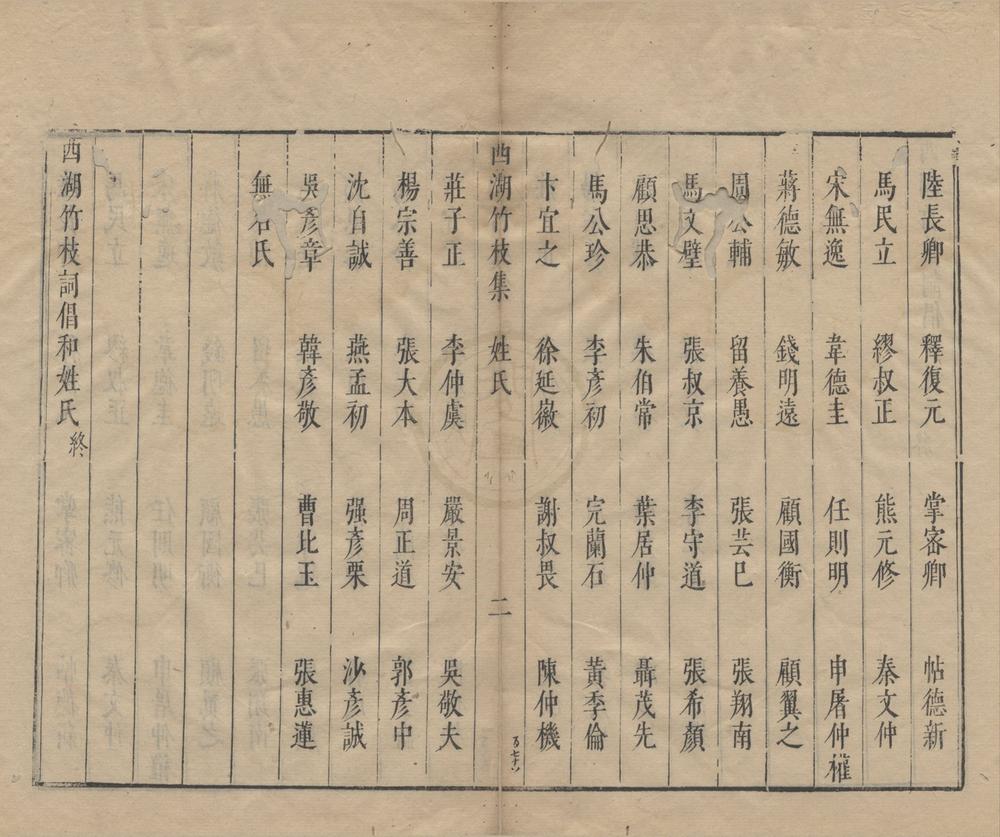 陸長卿　釋復元　掌審卿　帖德新
馬民立　繆叔正　熊元修　秦文仲
宋無逸　韋德圭　任則明　申屠仲權
蔣德敏　錢明遠　顧國衡　顧翼之
周公輔　留養愚　張芸巳　張翔南
馬文璧　張叔京　李守道　張希顏
顧思恭　朱伯常　葉居仲　聶茂先
馬公珍　李彥初　完蘭石　黃季倫
卞宜之　徐延徽　謝叔畏　陳仲機
西湖竹枝集　姓氏　二
莊子正　李仲虞　嚴景安　吳敬夫
楊宗善　張大本　周正道　郭彥中
沈自誠　燕孟初　强彥栗　沙彥誠
吳彥章　韓彥敬　曹比玉　張惠蓮
無名氏
西湖竹枝詞倡和姓氏終